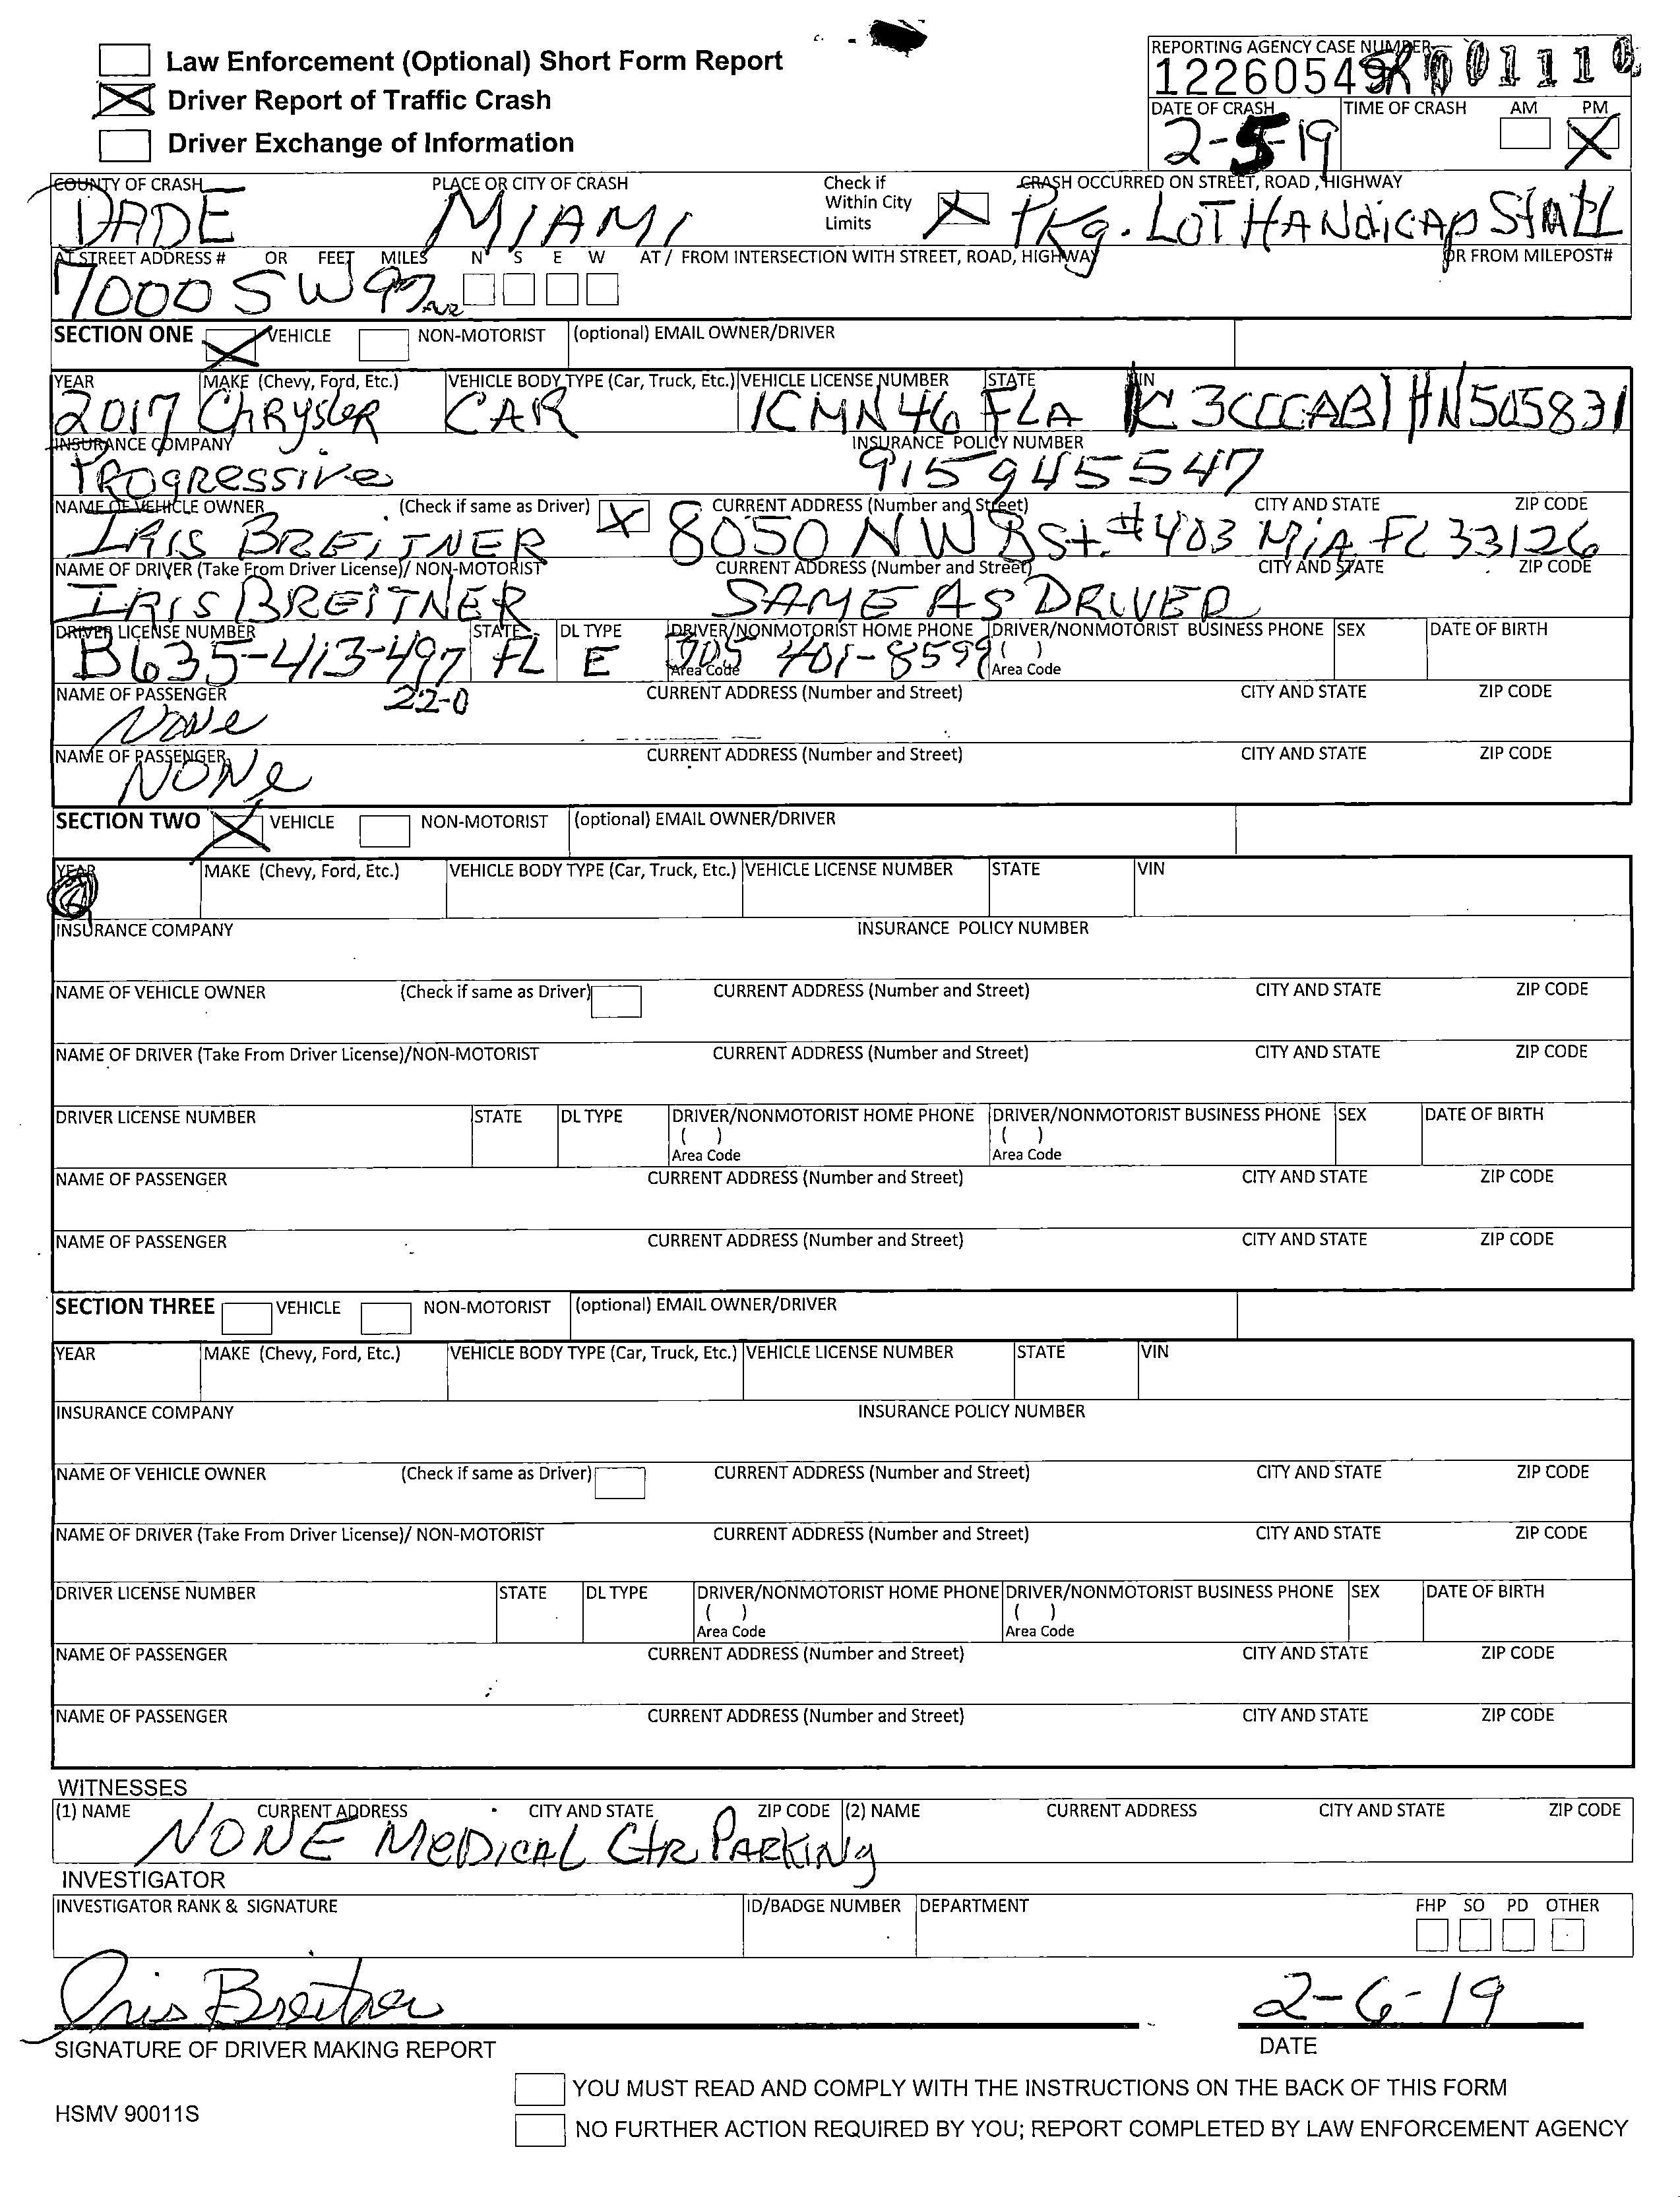 Law Enforcement (Optional) Short Form Report
Driver Report of Traffic Crash
Driver Exchange of Information
REPORTING AGENCY CASE NUMBER
12260549
DATE OF CRASH TIME OF CRASH AM PM
2-5-19
COUNTY OF CRASH PLACE OR CITY OF CRASH Check if Within City Limits CRASH OCCURRED ON STREET, ROAD, HIGHWAY
DADE MIAMI Pkg. LOT HANdiCAP StALL
AT STREET ADDRESS # OR FEET MILES N S E W AT / FROM INTERSECTION WITH STREET, ROAD, HIGHWAY OR FROM MILEPOST#
7000 SW 97 Ave
SECTION ONE VEHICLE NON-MOTORIST (optional) EMAIL OWNER/DRIVER
YEAR MAKE (Chevy, Ford, Etc.) VEHICLE BODY TYPE (Car, Truck, Etc.) VEHICLE LICENSE NUMBER STATE VIN
2017 ChRysleR CAR ICMN46 FLA 1C3CCCAB1HN505831
INSURANCE COMPANY INSURANCE POLICY NUMBER
PROgRessive 915945547
NAME OF VEHICLE OWNER (Check if same as Driver) CURRENT ADDRESS (Number and Street) CITY AND STATE ZIP CODE
IRIS BREITNER 8050 NW 8 St. #403 MiA FL 33126
NAME OF DRIVER (Take From Driver License)/ NON-MOTORIST CURRENT ADDRESS (Number and Street) CITY AND STATE ZIP CODE
IRIS BREITNER SAME AS DRIVER
DRIVER LICENSE NUMBER STATE DL TYPE DRIVER/NONMOTORIST HOME PHONE DRIVER/NONMOTORIST BUSINESS PHONE SEX DATE OF BIRTH
B635-413-497 FL E 305 401-8599 ( )
Area Code Area Code
22-0
NAME OF PASSENGER CURRENT ADDRESS (Number and Street) CITY AND STATE ZIP CODE
NoNe
NAME OF PASSENGER CURRENT ADDRESS (Number and Street) CITY AND STATE ZIP CODE
NONe
SECTION TWO VEHICLE NON-MOTORIST (optional) EMAIL OWNER/DRIVER
YEAR MAKE (Chevy, Ford, Etc.) VEHICLE BODY TYPE (Car, Truck, Etc.) VEHICLE LICENSE NUMBER STATE VIN
INSURANCE COMPANY INSURANCE POLICY NUMBER
NAME OF VEHICLE OWNER (Check if same as Driver) CURRENT ADDRESS (Number and Street) CITY AND STATE ZIP CODE
NAME OF DRIVER (Take From Driver License)/NON-MOTORIST CURRENT ADDRESS (Number and Street) CITY AND STATE ZIP CODE
DRIVER LICENSE NUMBER STATE DL TYPE DRIVER/NONMOTORIST HOME PHONE DRIVER/NONMOTORIST BUSINESS PHONE SEX DATE OF BIRTH
( ) ( )
Area Code Area Code
NAME OF PASSENGER CURRENT ADDRESS (Number and Street) CITY AND STATE ZIP CODE
NAME OF PASSENGER CURRENT ADDRESS (Number and Street) CITY AND STATE ZIP CODE
SECTION THREE VEHICLE NON-MOTORIST (optional) EMAIL OWNER/DRIVER
YEAR MAKE (Chevy, Ford, Etc.) VEHICLE BODY TYPE (Car, Truck, Etc.) VEHICLE LICENSE NUMBER STATE VIN
INSURANCE COMPANY INSURANCE POLICY NUMBER
NAME OF VEHICLE OWNER (Check if same as Driver) CURRENT ADDRESS (Number and Street) CITY AND STATE ZIP CODE
NAME OF DRIVER (Take From Driver License)/ NON-MOTORIST CURRENT ADDRESS (Number and Street) CITY AND STATE ZIP CODE
DRIVER LICENSE NUMBER STATE DL TYPE DRIVER/NONMOTORIST HOME PHONE DRIVER/NONMOTORIST BUSINESS PHONE SEX DATE OF BIRTH
( ) ( )
Area Code Area Code
NAME OF PASSENGER CURRENT ADDRESS (Number and Street) CITY AND STATE ZIP CODE
NAME OF PASSENGER CURRENT ADDRESS (Number and Street) CITY AND STATE ZIP CODE
WITNESSES
(1) NAME CURRENT ADDRESS CITY AND STATE ZIP CODE (2) NAME CURRENT ADDRESS CITY AND STATE ZIP CODE
NONE MeDICAL CtR PARKINg
INVESTIGATOR
INVESTIGATOR RANK & SIGNATURE ID/BADGE NUMBER DEPARTMENT FHP SO PD OTHER
Iris Breitner 2-6-19
SIGNATURE OF DRIVER MAKING REPORT DATE
YOU MUST READ AND COMPLY WITH THE INSTRUCTIONS ON THE BACK OF THIS FORM
HSMV 90011S
NO FURTHER ACTION REQUIRED BY YOU; REPORT COMPLETED BY LAW ENFORCEMENT AGENCY